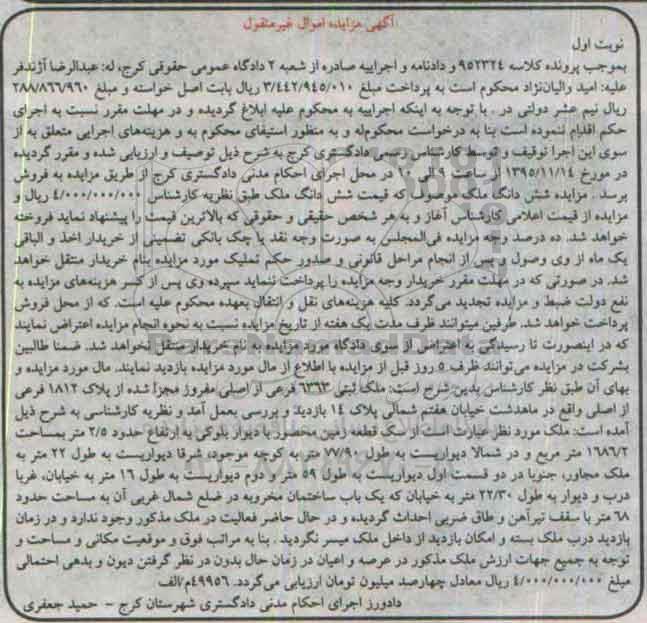 آگهی مزایده اموال غیرمنقول
نوبت اول
بموجب پرونده کلاسه ۹۵۲۳۲۴ و دادنامه و اجراییه صادره از شعبه ۲ دادگاه عمومی حقوقی کرج، له: عبدالرضا آژندفر
علیه: امید والیان‌نژاد محکوم است به پرداخت مبلغ ۳/۴۴۲/۹۴۵/۰۱۰ ریال بابت اصل خواسته و مبلغ ۲۸۸/۸۶۶/۹۶۰
ریال نیم عشر دولتی در . با توجه به اینکه اجراییه به محکوم علیه ابلاغ گردیده و در مهلت مقرر نسبت به اجرای
حکم اقدام ننموده است بنا به درخواست محکوم‌له و به منظور استیفای محکوم به و هزینه‌های اجرایی متعلق به از
سوی این اجرا توقیف و توسط کارشناس رسمی دادگستری کرج به شرح ذیل توصیف و ارزیابی شده و مقرر گردیده
در مورخ ۱۳۹۵/۱۱/۱۴ از ساعت ۹ الی ۱۰ در محل اجرای احکام مدنی دادگستری کرج از طریق مزایده به فروش
برسد . مزایده شش دانگ ملک موصوف که قیمت شش دانگ ملک طبق نظریه کارشناس ۴/۰۰۰/۰۰۰/۰۰۰ ریال و
مزایده از قیمت اعلامی کارشناس آغاز و به هر شخص حقیقی و حقوقی که بالاترین قیمت را پیشنهاد نماید فروخته
خواهد شد. ده درصد وجه مزایده فی‌المجلس به صورت وجه نقد یا چک بانکی تضمینی از خریدار اخذ و الباقی
یک ماه از وی وصول و پس از انجام مراحل قانونی و صدور حکم تملیک مورد مزایده بنام خریدار منتقل خواهد
شد. در صورتی که در مهلت مقرر خریدار وجه مزایده را پرداخت ننماید سپرده وی پس از کسر هزینه‌های مزایده به
نفع دولت ضبط و مزایده تجدید می‌گردد. کلیه هزینه‌های نقل و انتقال بعهده محکوم علیه است. که از محل فروش
پرداخت خواهد شد. طرفین میتوانند ظرف مدت یک هفته از تاریخ مزایده نسبت به نحوه انجام مزایده اعتراض نمایند
که در اینصورت تا رسیدگی به اعتراض از سوی دادگاه مورد مزایده به نام خریدار منتقل نخواهد شد. ضمنا طالبین
بشرکت در مزایده می‌توانند ظرف ۵ روز قبل از مزایده با اطلاع از مال مورد مزایده بازدید نمایند. مال مورد مزایده و
بهای آن طبق نظر کارشناس بدین شرح است: ملک ثبتی ۶۳۶۳ فرعی از اصلی مفروز مجزا شده از پلاک ۱۸۱۲ فرعی
از اصلی واقع در ماهدشت خیابان هفتم شمالی پلاک ۱۴ بازدید و بررسی بعمل آمد و نظریه کارشناسی به شرح ذیل
آمده است: ملک مورد نظر عبارت است از یک قطعه زمین محصور با دیوار بلوکی به ارتفاع حدود ۲/۵ متر بمساحت
۱۶۸۶/۲ متر مربع و در شمالا دیواریست به طول ۷۷/۹۰ متر به کوچه موجود، شرقا دیواریست به طول ۲۲ متر به
ملک مجاور، جنوبا در دو قسمت اول دیواریست به طول ۵۹ متر و دوم دیواریست به طول ۱۶ متر به خیابان، غربا
درب و دیوار به طول ۲۲/۳۰ متر به خیابان که یک باب ساختمان مخروبه در ضلع شمال غربی آن به مساحت حدود
۶۸ متر با سقف تیرآهن و طاق ضربی احداث گردیده و در حال حاضر فعالیت در ملک مذکور وجود ندارد و در زمان
بازدید درب ملک بسته و امکان بازدید از داخل ملک میسر نگردید . بنا به مراتب فوق و موقعیت مکانی و مساحت و
توجه به جمیع جهات ارزش ملک مذکور در عرصه و اعیان در زمان حال بدون در نظر گرفتن دیون و بدهی احتمالی
مبلغ ۴/۰۰۰/۰۰۰/۰۰۰ ریال معادل چهارصد میلیون تومان ارزیابی می‌گردد. ۴۹۹۵۶م/الف
دادورز اجرای احکام مدنی دادگستری شهرستان کرج - حمید جعفری